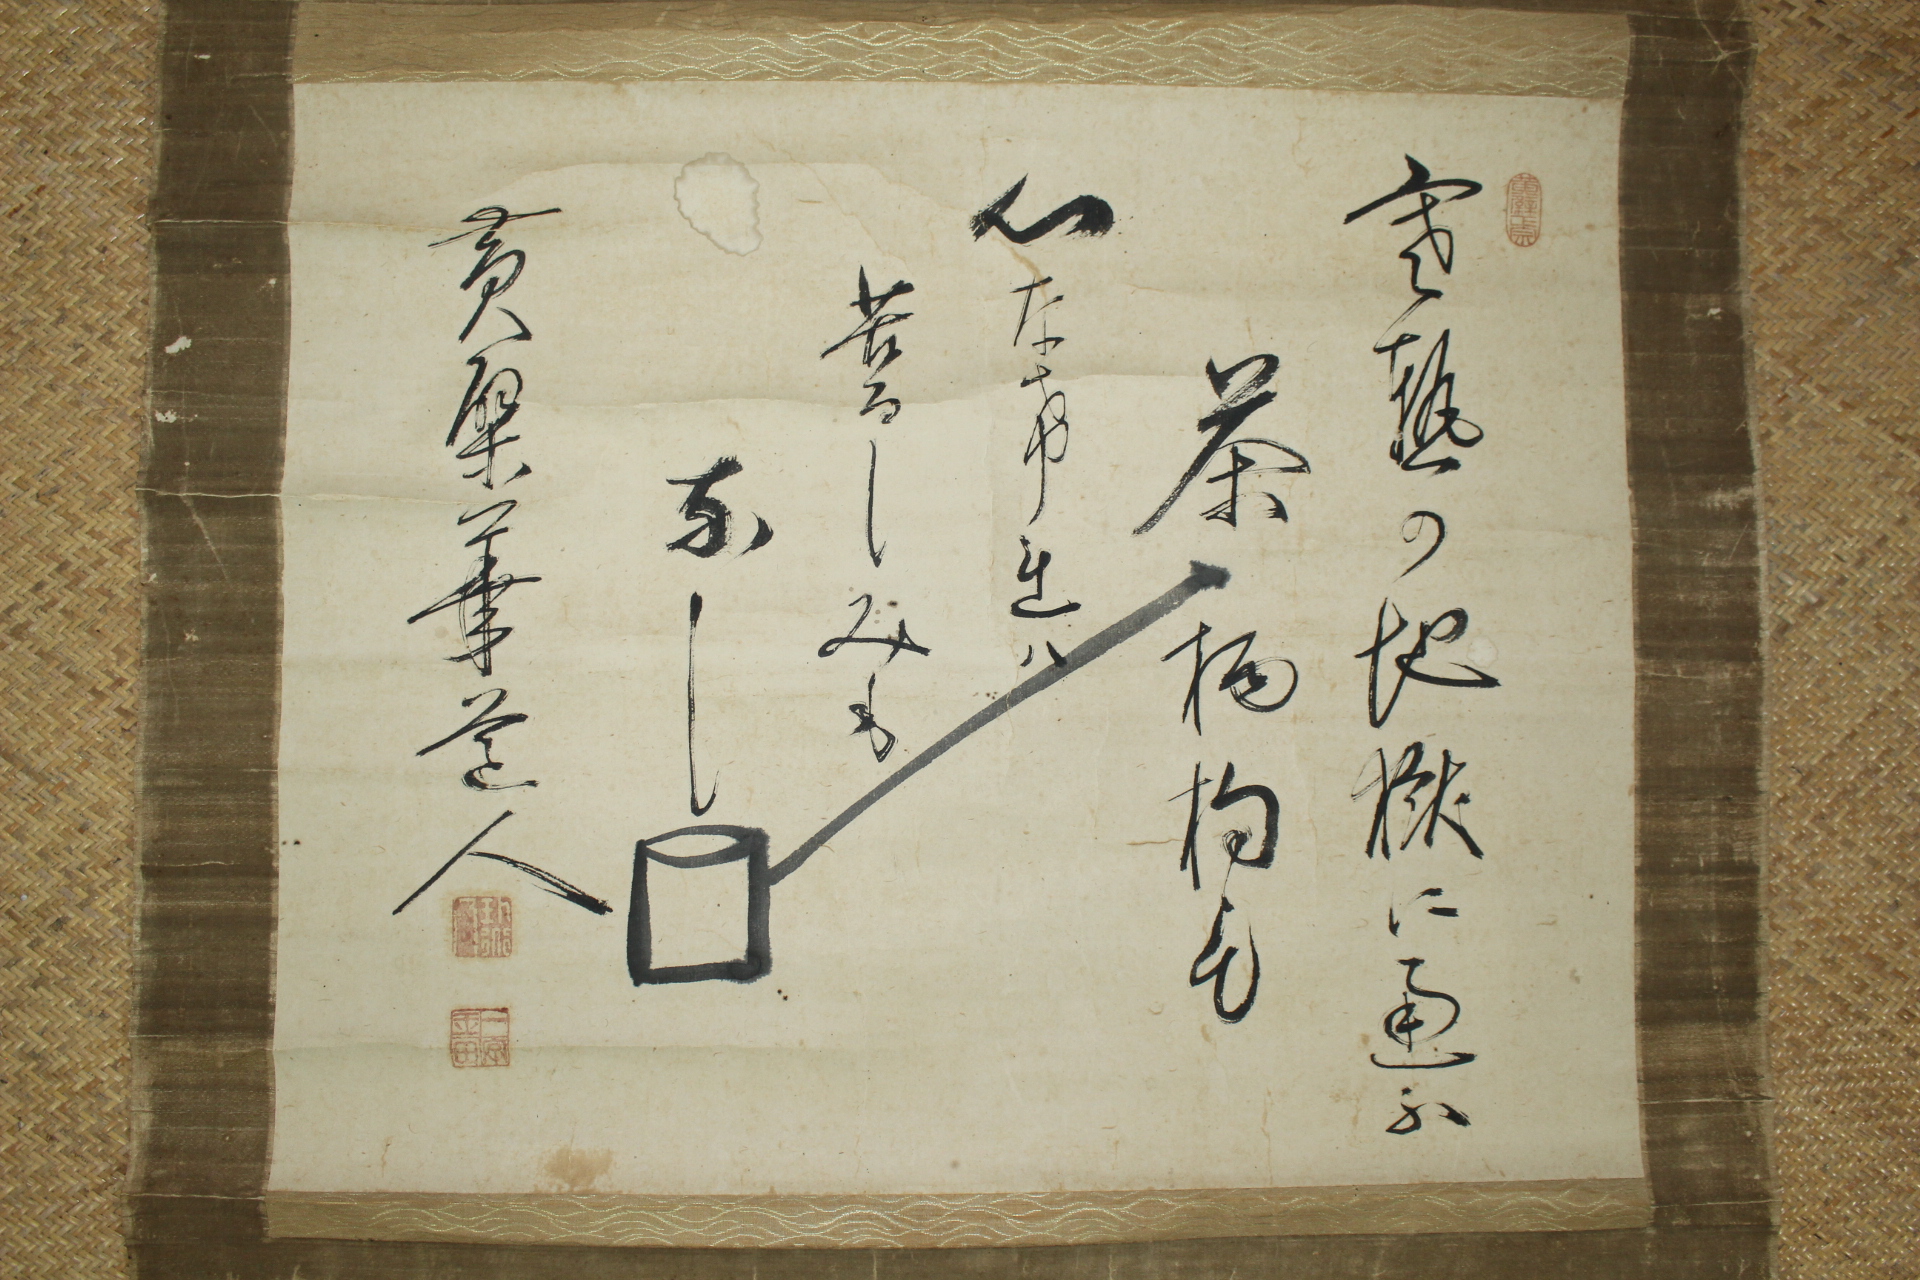 寒熱の地獄に通ふ
茶柄杓も
心なければ
苦るしみも
なし
黄檗華道人